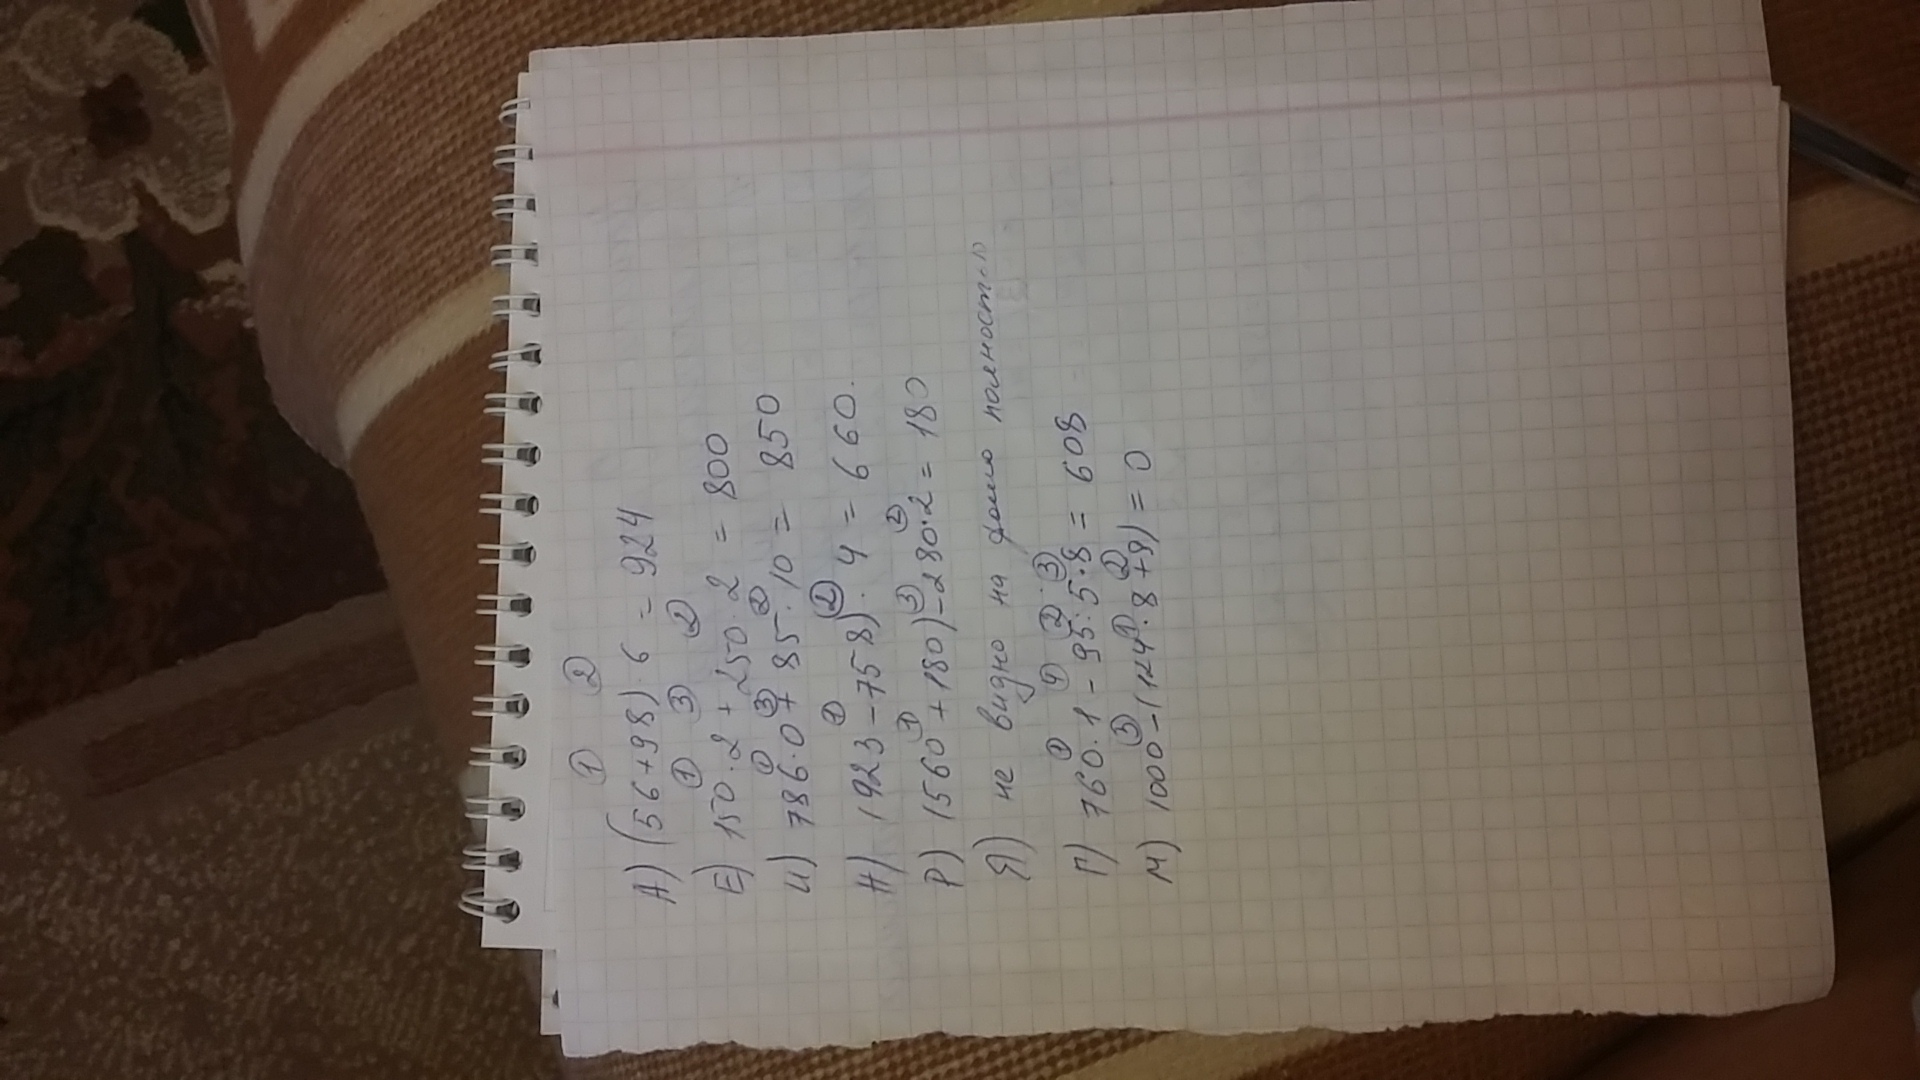 ① ②
А) (56+98)·6 = 924
① ③ ②
Е) 150·2 + 250·2 = 800
① ③ ②
И) 786·0+85·10 = 850
① ②
Н) 1923-758)·4 = 660.
① ③ ②
Р) 1560+180)-280·2 = 180
Я) не видно на фото полностью
① ④ ② ③
П) 760·1-95:5·8 = 608
③ ① ②
М) 1000-(124·8+8) = 0